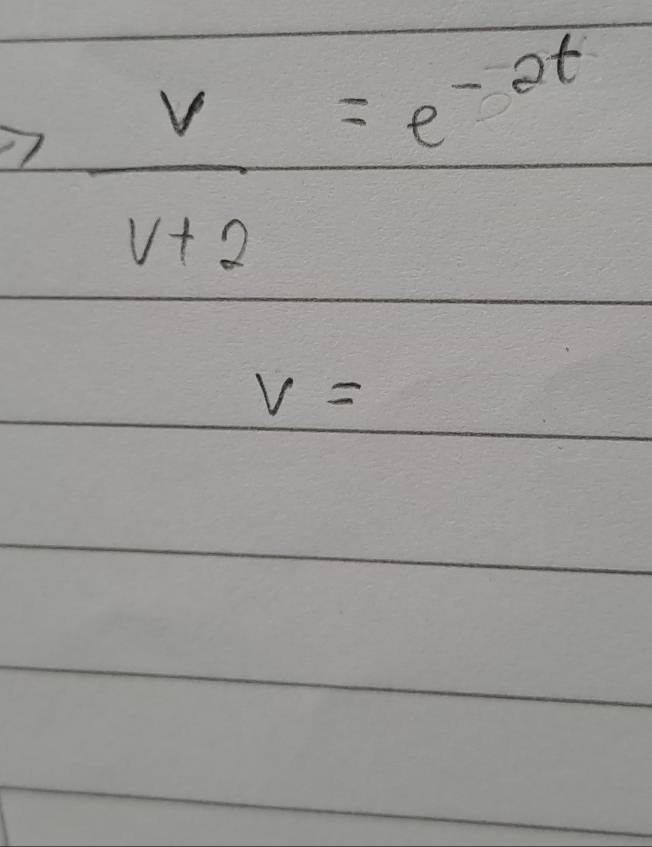 ⇒ v / v+2 = e^-2t
v =